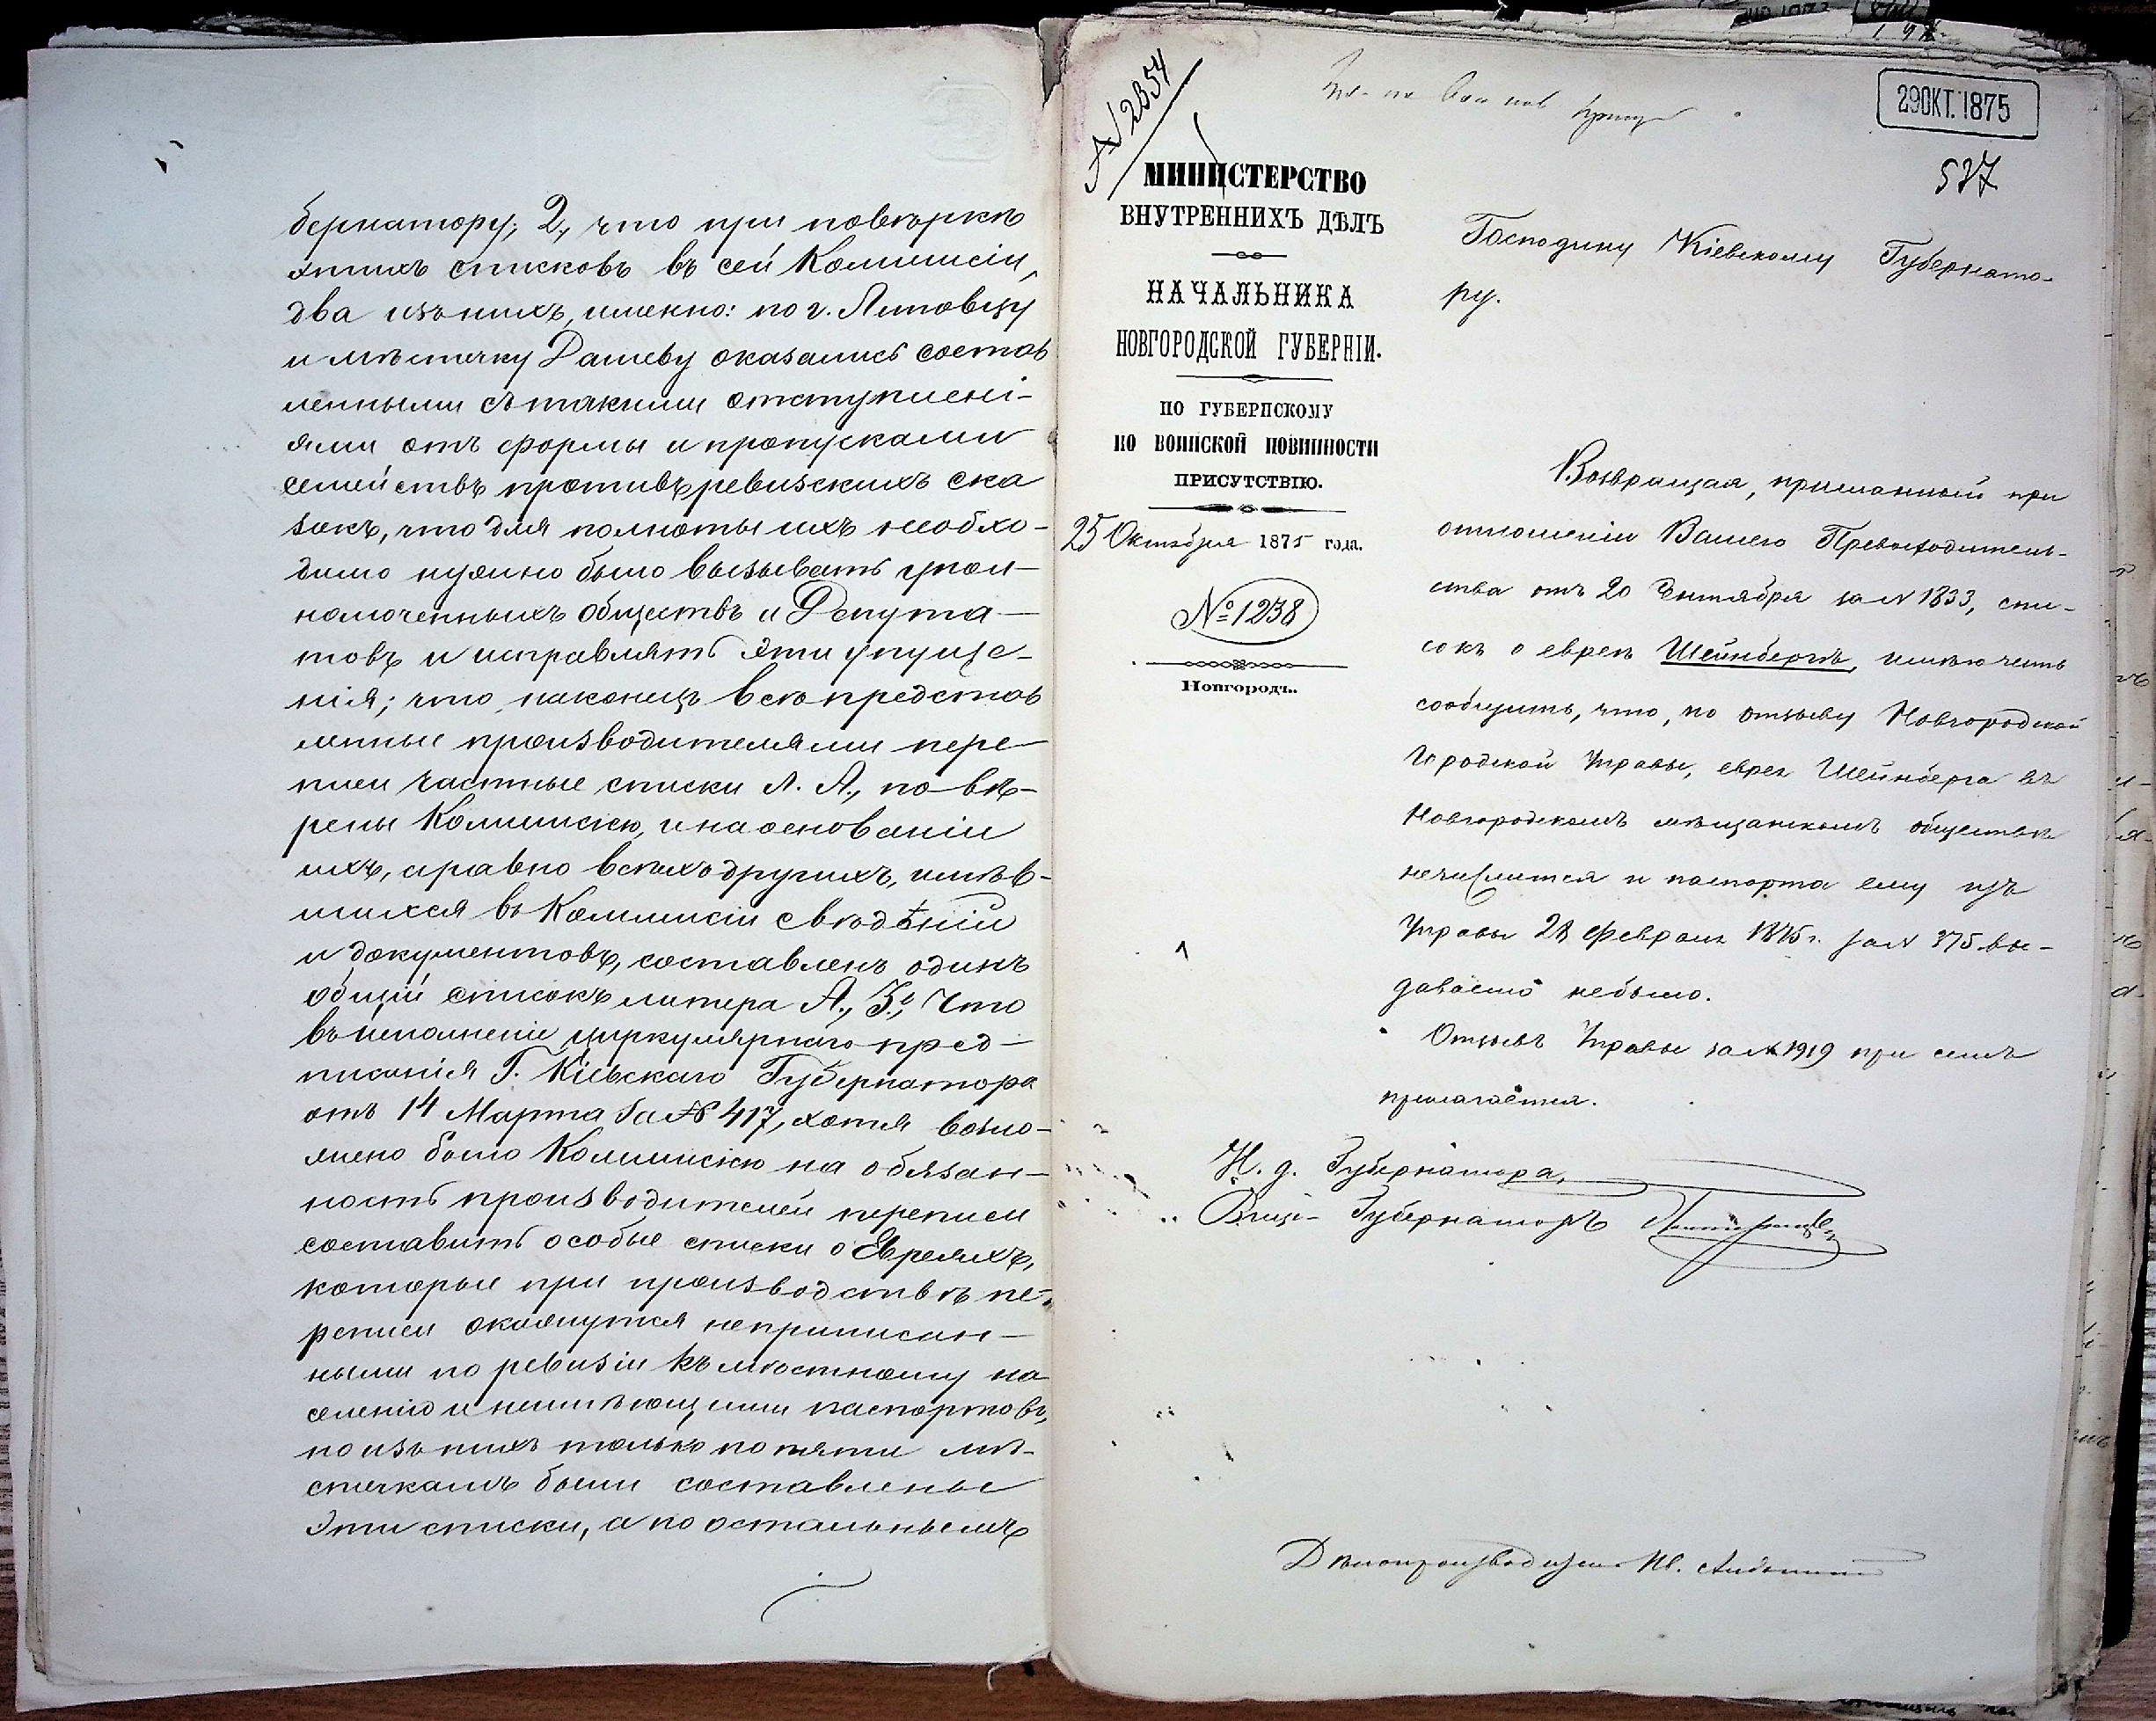 бернатору; 2, что при повѣркѣ
этихъ списковъ въ сей Коммисіи,
два изъ нихъ, именно: по г. Липовцу
и мѣстечку Дашеву оказались состав
ленными съ такими отступлені-
ями отъ формы и пропусками
семействъ противъ ревизскихъ ска
зокъ, что для полноты ихъ необхо-
димо нужно было вызывать упол-
номоченныхъ обществъ и Депута-
товъ и исправлять эти упуще-
нія; что, наконецъ всѣ представ
ленные производителями пере-
писи частные списки Л. А., повѣ-
рены Коммисіею, и на основаніи
ихъ, а равно всѣхъ другихъ, имѣв-
шихся въ Коммисіи свѣдѣній
и документовъ, составленъ одинъ
общій списокъ литера А., 3., Что
въ исполненіе циркулярнаго пред-
писанія Г. Кіевскаго Губернатора
отъ 14 Марта за № 417, хотя возло-
жено было Коммисіею на обязан-
ность производителей переписи
составить особые списки о Евреяхъ,
которые при производствѣ пе-
реписи окажутся неприписан-
ными по ревизіи къ мѣстному на
селенію и неимѣющими паспортовъ,
но изъ нихъ только по пяти мѣ-
стечкамъ были составлены
Эти списки, а по остальнымъ
№ 2354
29 ОКТ. 1875
537
МИНИСТЕРСТВО
ВНУТРЕННИХЪ ДѢЛЪ
НАЧАЛЬНИКА
НОВГОРОДСКОЙ ГУБЕРНІИ.
ПО ГУБЕРНСКОМУ
ПО ВОИНСКОЙ ПОВИННОСТИ
ПРИСУТСТВІЮ.
25 Октября 1875 года.
№ 1238
Новгородъ.
Господину Кіевскому Губернато-
ру.
Возвращая, присланный при
отношеніи Вашего Превосходитель-
ства отъ 20 Сентября за № 1833, спи-
сокъ о евреѣ Шейнбергѣ, имѣю честь
сообщить, что, по отзыву Новгородской
Городской Управы, еврей Шейнберга въ
Новгородскомъ мѣщанскомъ обществѣ
нечислится и паспорта ему изъ
Управы 28 Февраля 1875 г. за № 375 вы-
даваемо небыло.
Отзывъ Управы за № 1919 при семъ
прилагается.
И. д. Губернатора,
Вице-Губернаторъ
Дѣлопроизводитель